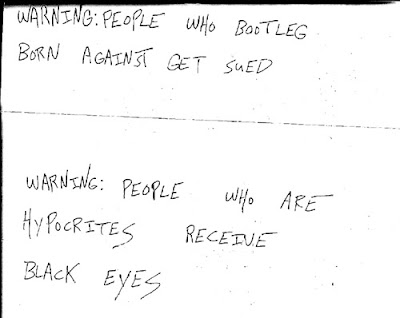 WARNING: PEOPLE WHO BOOTLEG
BORN AGAINST GET SUED
WARNING: PEOPLE WHO ARE
HYPOCRITES RECEIVE
BLACK EYES